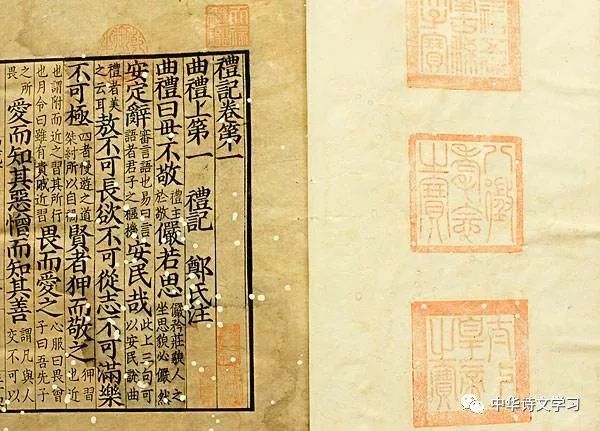 禮記卷第一
曲禮上第一 禮記 鄭氏注
曲禮曰毋不敬 禮主於敬 儼若思 儼矜莊貌人之坐思貌必儼然
安定辭 審言語也易曰言語者君子之樞機 安民哉 此上三句可以安民說曲
禮者美之云耳 敖不可長欲不可從志不可滿樂
不可極 四者慢遊之道桀紂所以自禍 賢者狎而敬之 狎習也近
也謂附而近之習其所行也月令曰雖有貴戚近習 畏而愛之 心服曰畏曾子曰吾先子
之所畏 愛而知其惡憎而知其善 謂凡與人交不可以
八徵耄念之寶
太上皇帝之寶
中华诗文学习